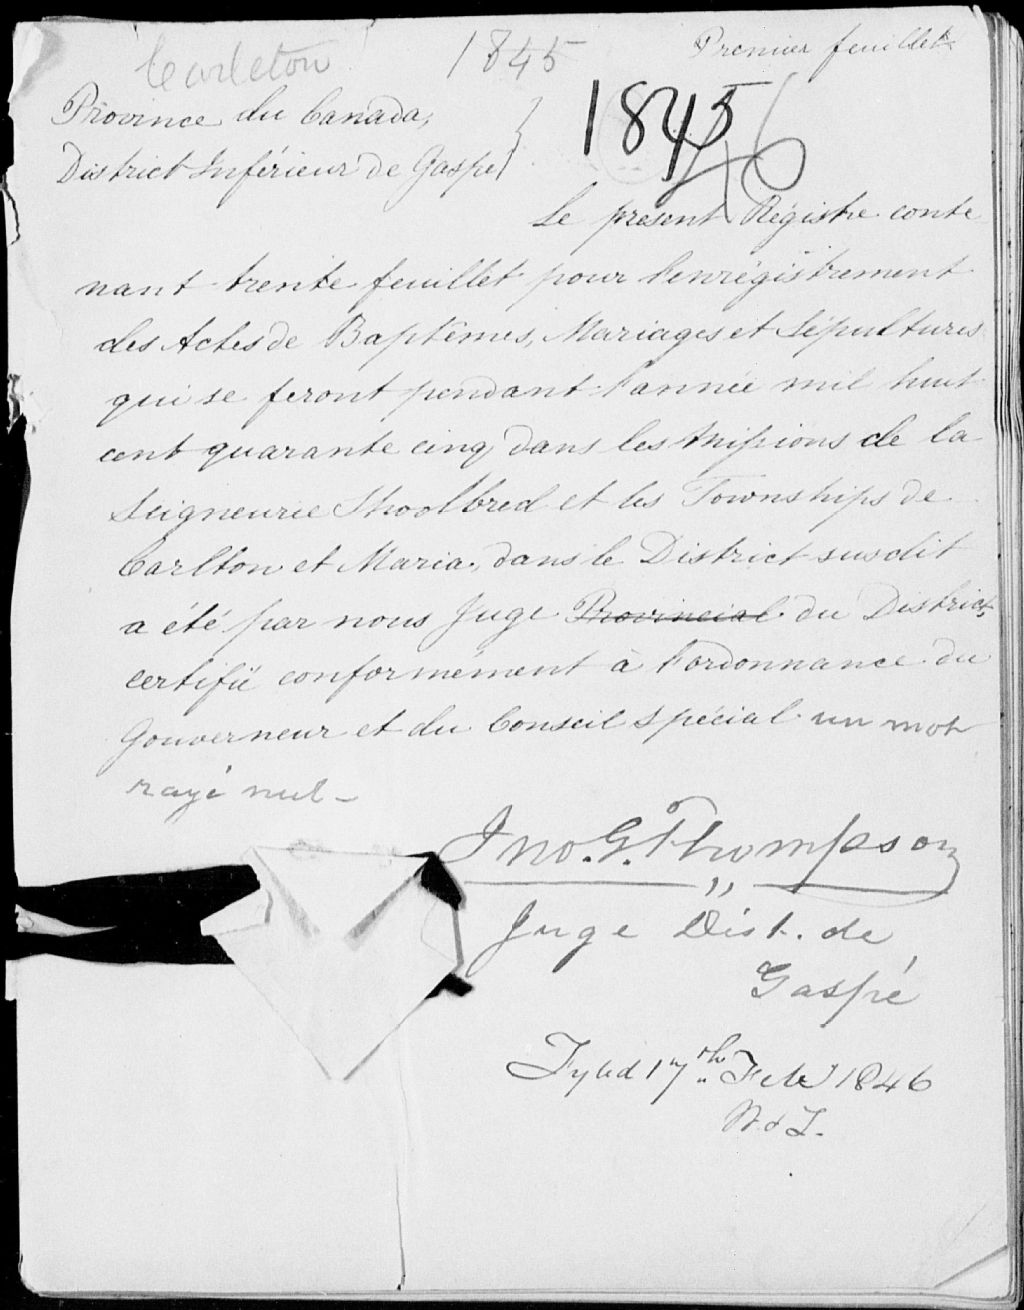 Carleton 1845 Premier feuillet
1845 6
Province du Canada,
District Inférieur de Gaspé
Le présent Régistre conte
nant trente feuillet pour l'enrégistrement
des Actes de Baptêmes, Mariages et Sépultures
qui se feront pendant l'année mil huit
cent quarante cinq dans les Missions de la
Seigneurie Shoolbred et les Townships de
Carlton et Maria, dans le District susdit
a été par nous Juge Provincial du District
certifié conformément à l'ordonnance du
Gouverneur et du Conseil Spécial un mot
rayé nul -
Jno. G. Thompson
Juge Dist. de
Gaspé
Fyled 17th Feb 1846
W & T.